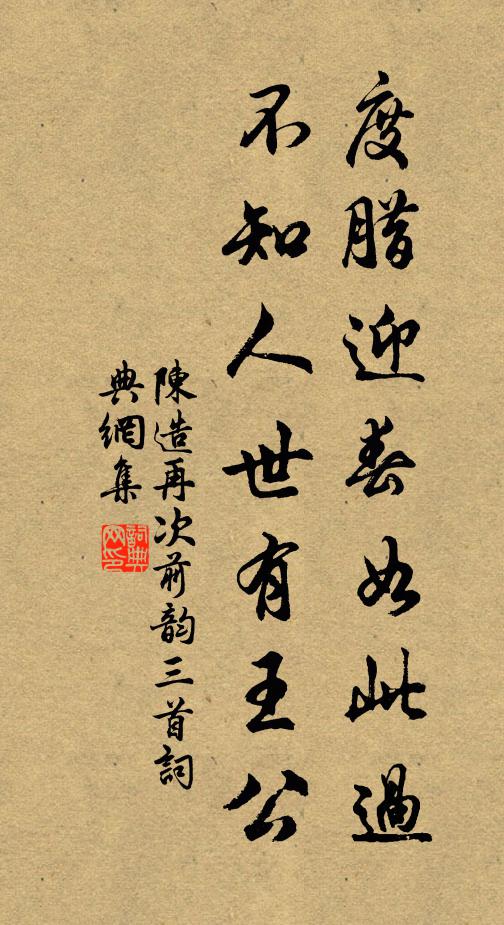 度腊迎春如此過
不知人世有王公
陳造再次前韵三首詞
典網集
詞典
网印